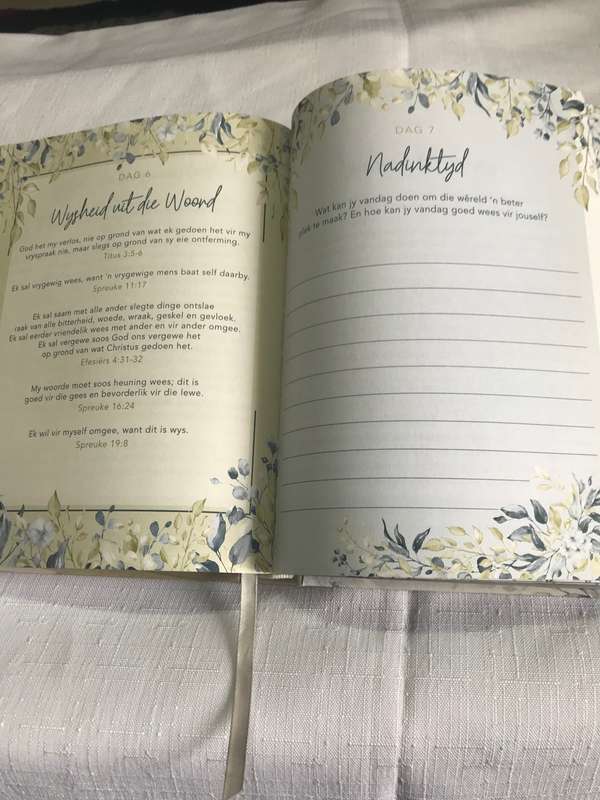 DAG 6
Wysheid uit die Woord
God het my verlos, nie op grond van wat ek gedoen het vir my
vryspraak nie, maar slegs op grond van sy eie ontferming.
Titus 3:5-6
Ek sal vrygewig wees, want 'n vrygewige mens baat self daarby.
Spreuke 11:17
Ek sal saam met alle ander slegte dinge ontslae
raak van alle bitterheid, woede, wraak, geskel en gevloek.
Ek sal eerder vriendelik wees met ander en vir ander omgee.
Ek sal vergewe soos God ons vergewe het
op grond van wat Christus gedoen het.
Efesiërs 4:31-32
My woorde moet soos heuning wees; dit is
goed vir die gees en bevorderlik vir die lewe.
Spreuke 16:24
Ek wil vir myself omgee, want dit is wys.
Spreuke 19:8
DAG 7
Nadinktyd
Wat kan jy vandag doen om die wêreld 'n beter
plek te maak? En hoe kan jy vandag goed wees vir jouself?